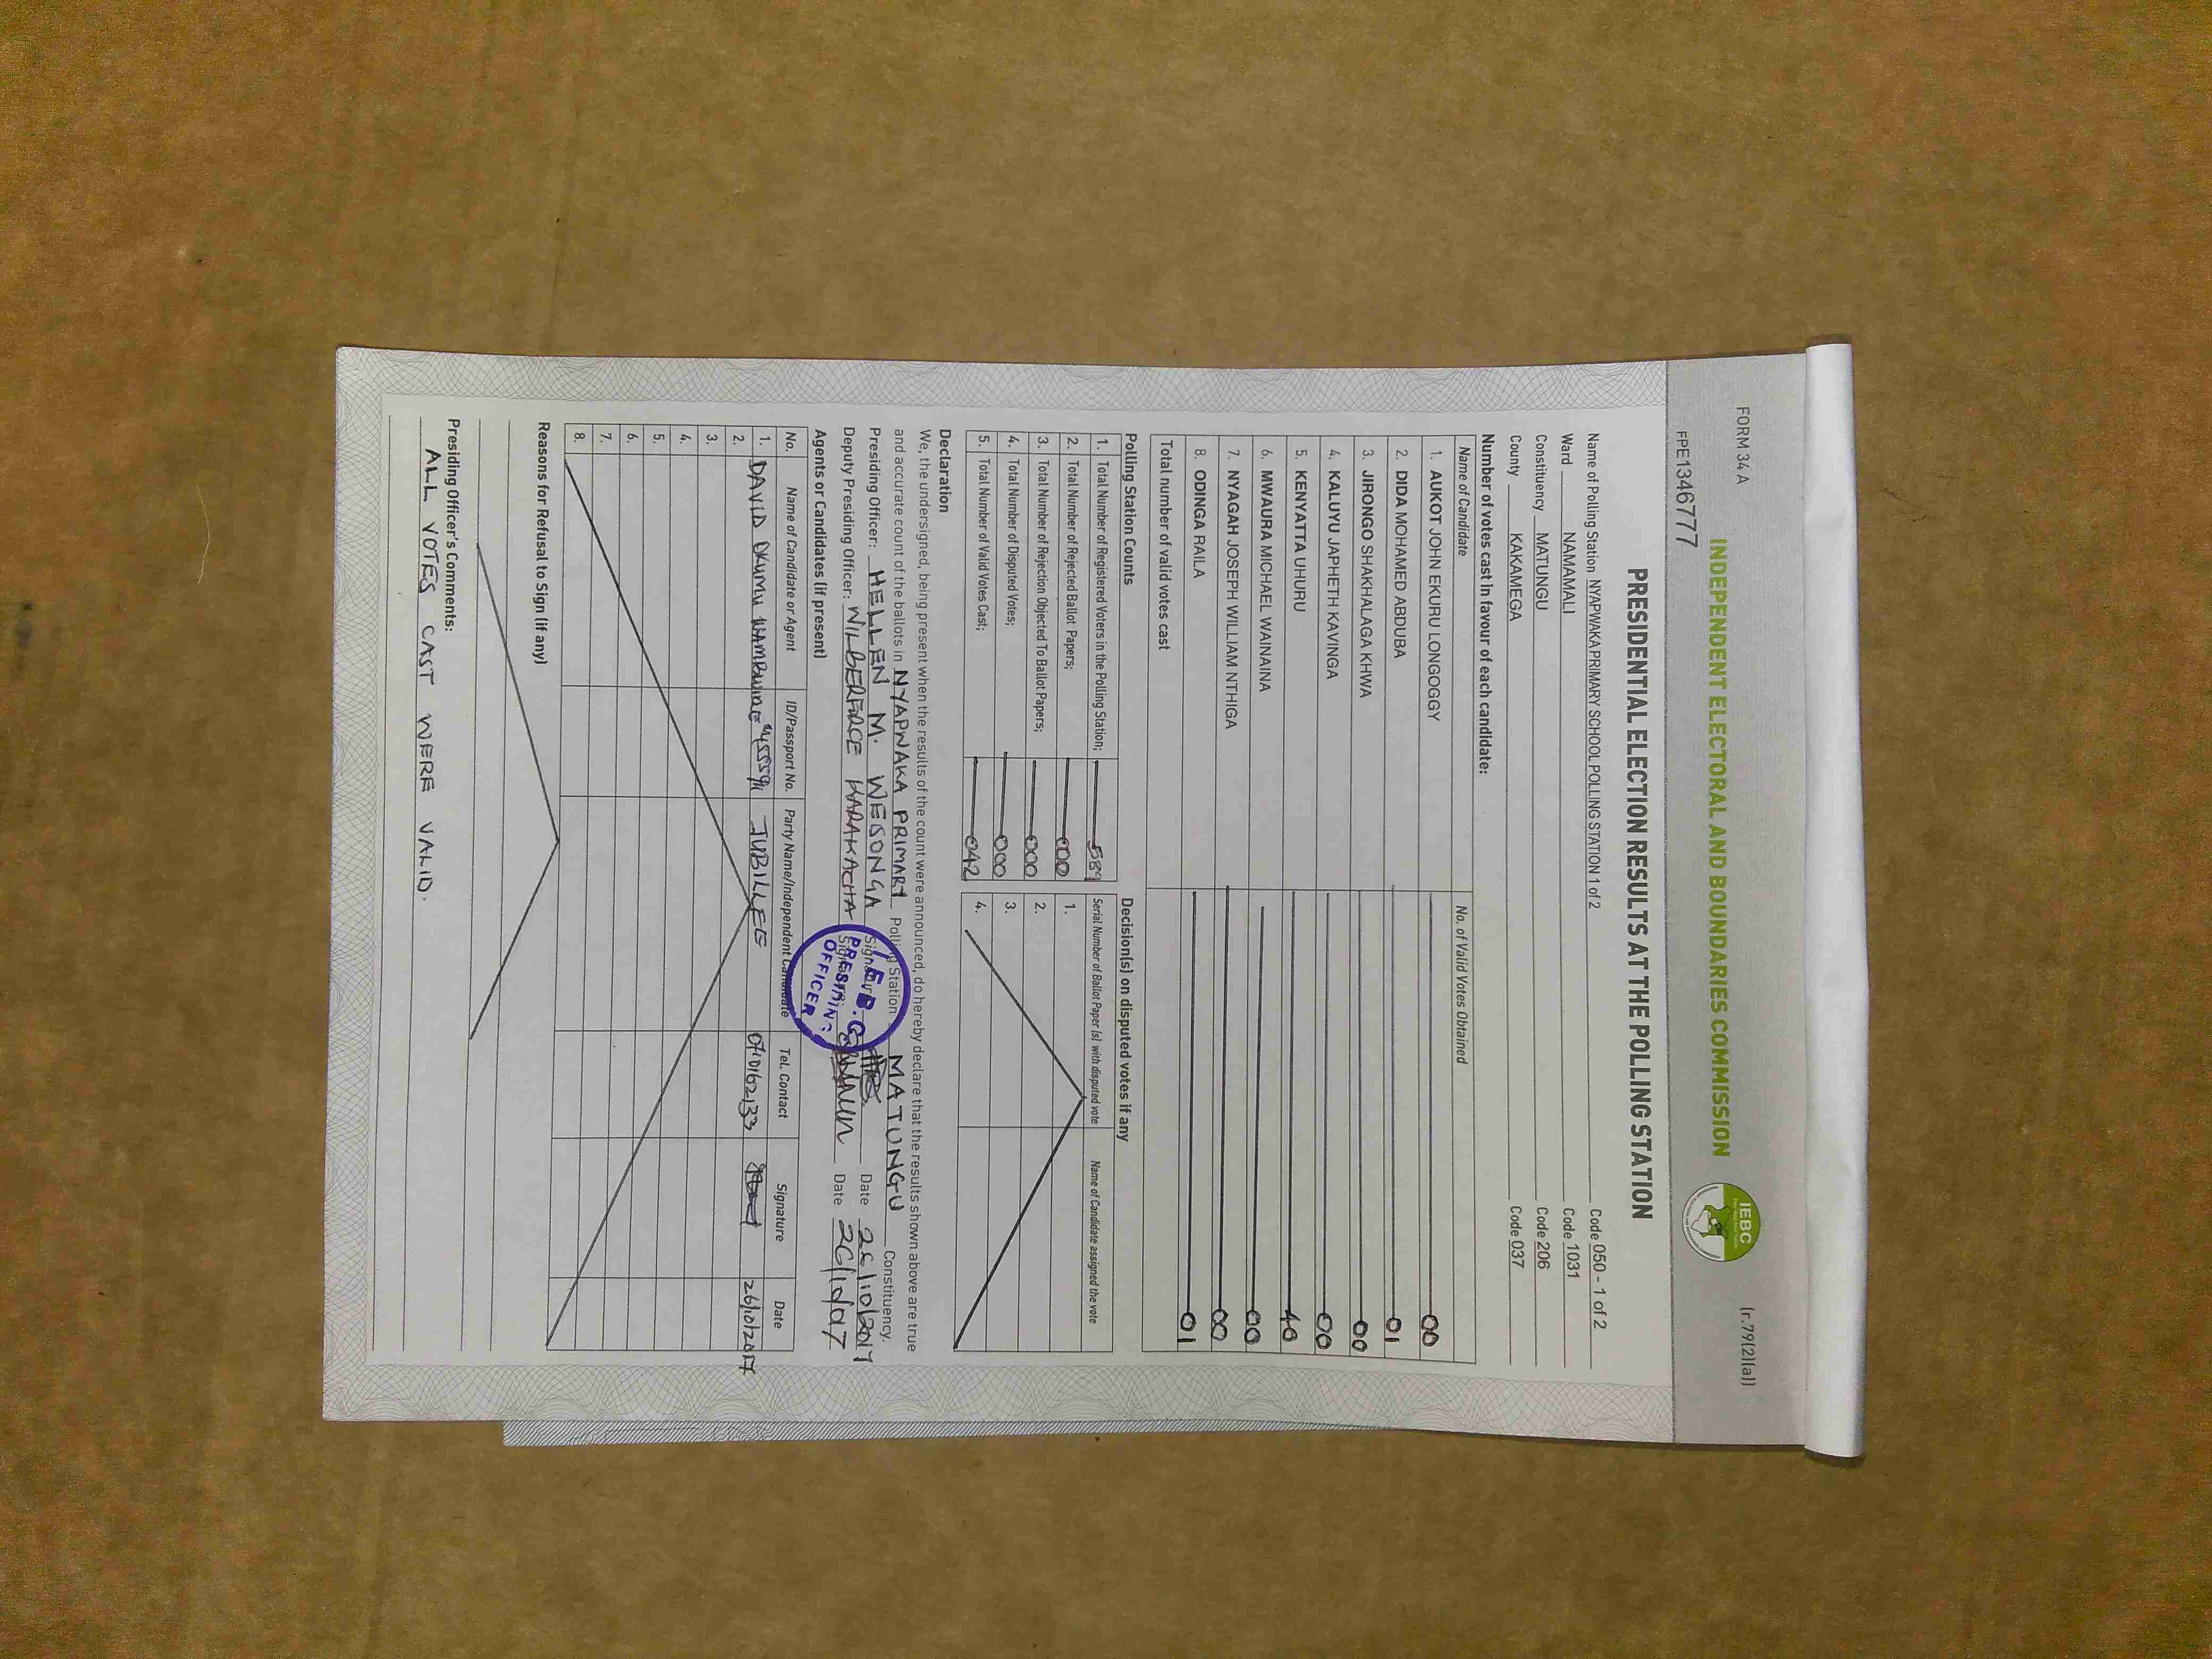 FORM 34 A
(r.79(2)(a))
INDEPENDENT ELECTORAL AND BOUNDARIES COMMISSION
IEBC
FPE1346777
PRESIDENTIAL ELECTION RESULTS AT THE POLLING STATION
Name of Polling Station NYAPWAKA PRIMARY SCHOOL POLLING STATION 1 of 2 Code 050 - 1 of 2
Ward NAMAMALI Code 1031
Constituency MATUNGU Code 206
County KAKAMEGA Code 037
Number of votes cast in favour of each candidate:
Name of Candidate No. of Valid Votes Obtained
1. AUKOT JOHN EKURU LONGOGGY 00
2. DIDA MOHAMED ABDUBA 01
3. JIRONGO SHAKHALAGA KHWA 00
4. KALUYU JAPHETH KAVINGA 00
5. KENYATTA UHURU 40
6. MWAURA MICHAEL WAINAINA 00
7. NYAGAH JOSEPH WILLIAM NTHIGA 00
8. ODINGA RAILA 01
Total number of valid votes cast
Polling Station Counts
1. Total Number of Registered Voters in the Polling Station; 589
2. Total Number of Rejected Ballot Papers; 000
3. Total Number of Rejection Objected To Ballot Papers; 000
4. Total Number of Disputed Votes; 000
5. Total Number of Valid Votes Cast; 042
Decision(s) on disputed votes if any
Serial Number of Ballot Paper (s) with disputed vote Name of Candidate assigned the vote
1.
2.
3.
4.
Declaration
We, the undersigned, being present when the results of the count were announced, do hereby declare that the results shown above are true
and accurate count of the ballots in NYAPWAKA PRIMARY Polling Station MATUNGU Constituency.
Presiding Officer: HELLEN M. WESONGA Signature Date 26/10/2017
Deputy Presiding Officer: WILBERFORCE KARAKACHA Date 26/10/017
I.E.B.C
PRESIDING
OFFICER
Agents or Candidates (if present)
No. Name of Candidate or Agent ID/Passport No. Party Name/Independent Candidate Tel. Contact Signature Date
1. DAVID OKUMU JUBILEE 0710162133 26/10/2017
2.
3.
4.
5.
6.
7.
8.
Reasons for Refusal to Sign (if any)
Presiding Officer's Comments:
ALL VOTES CAST WERE VALID.